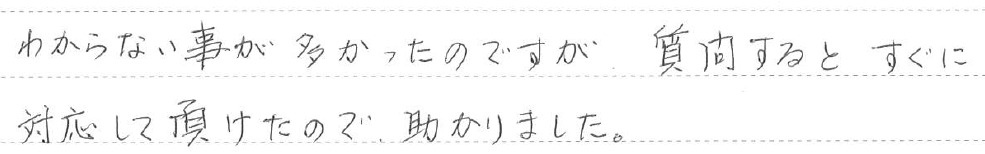 わからない事が多かったのですが、質問すると すぐに
対応して頂けたので、助かりました。